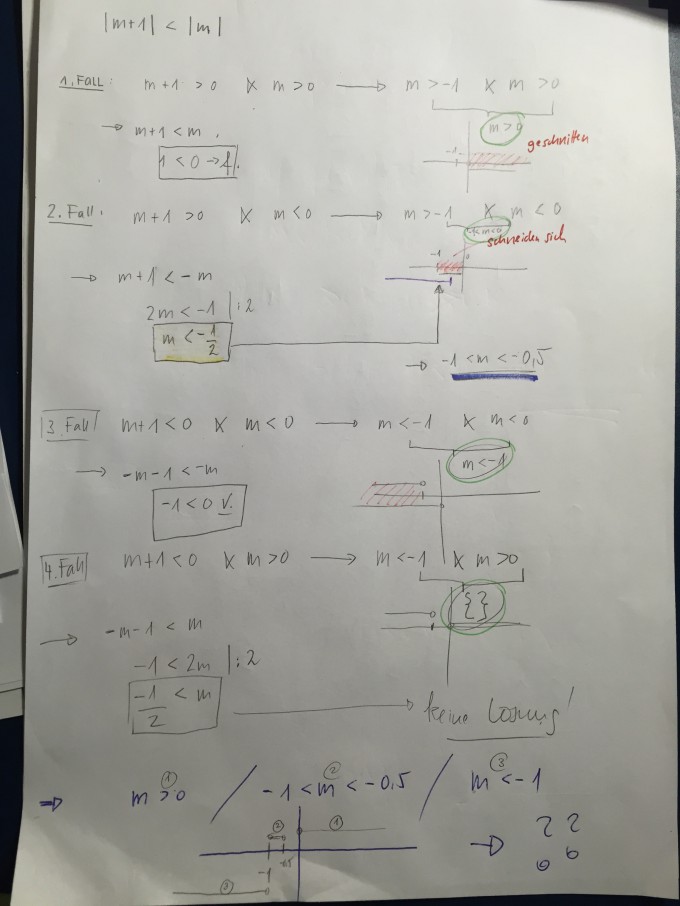 |m+1| < |m|
1. Fall: m+1 > 0 ∧ m > 0 → m > -1 ∧ m > 0
m > 0
→ m+1 < m
geschnitten
-1
1 < 0 → f.
2. Fall: m+1 > 0 ∧ m < 0 → m > -1 ∧ m < 0
-1 < m < 0
schneiden sich
-1 0
→ m+1 < -m
2m < -1 | :2
m < -1/2
→ -1 < m < -0,5
3. Fall m+1 < 0 ∧ m < 0 → m < -1 ∧ m < 0
m < -1
→ -m-1 < -m
-1 < 0 V.
4. Fall m+1 < 0 ∧ m > 0 → m < -1 ∧ m > 0
{ }
→ -m-1 < m
-1 < 2m | :2
-1/2 < m → keine Lösung!
① ② ③
⇒ m > 0 / -1 < m < -0,5 / m < -1
② ①
-1
③
→ ? ?